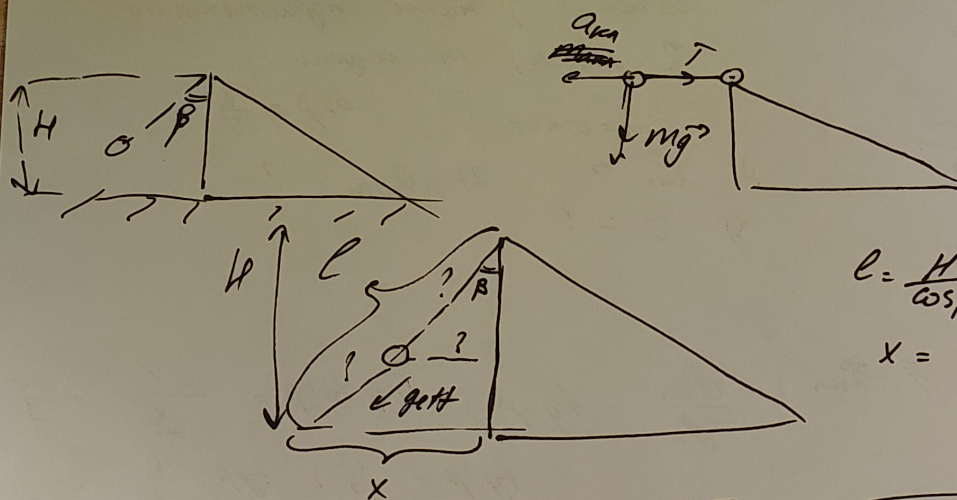 aкл
T
H
β
mg
H
l
?
β
?
?
geff
x
l = H / cos
x =